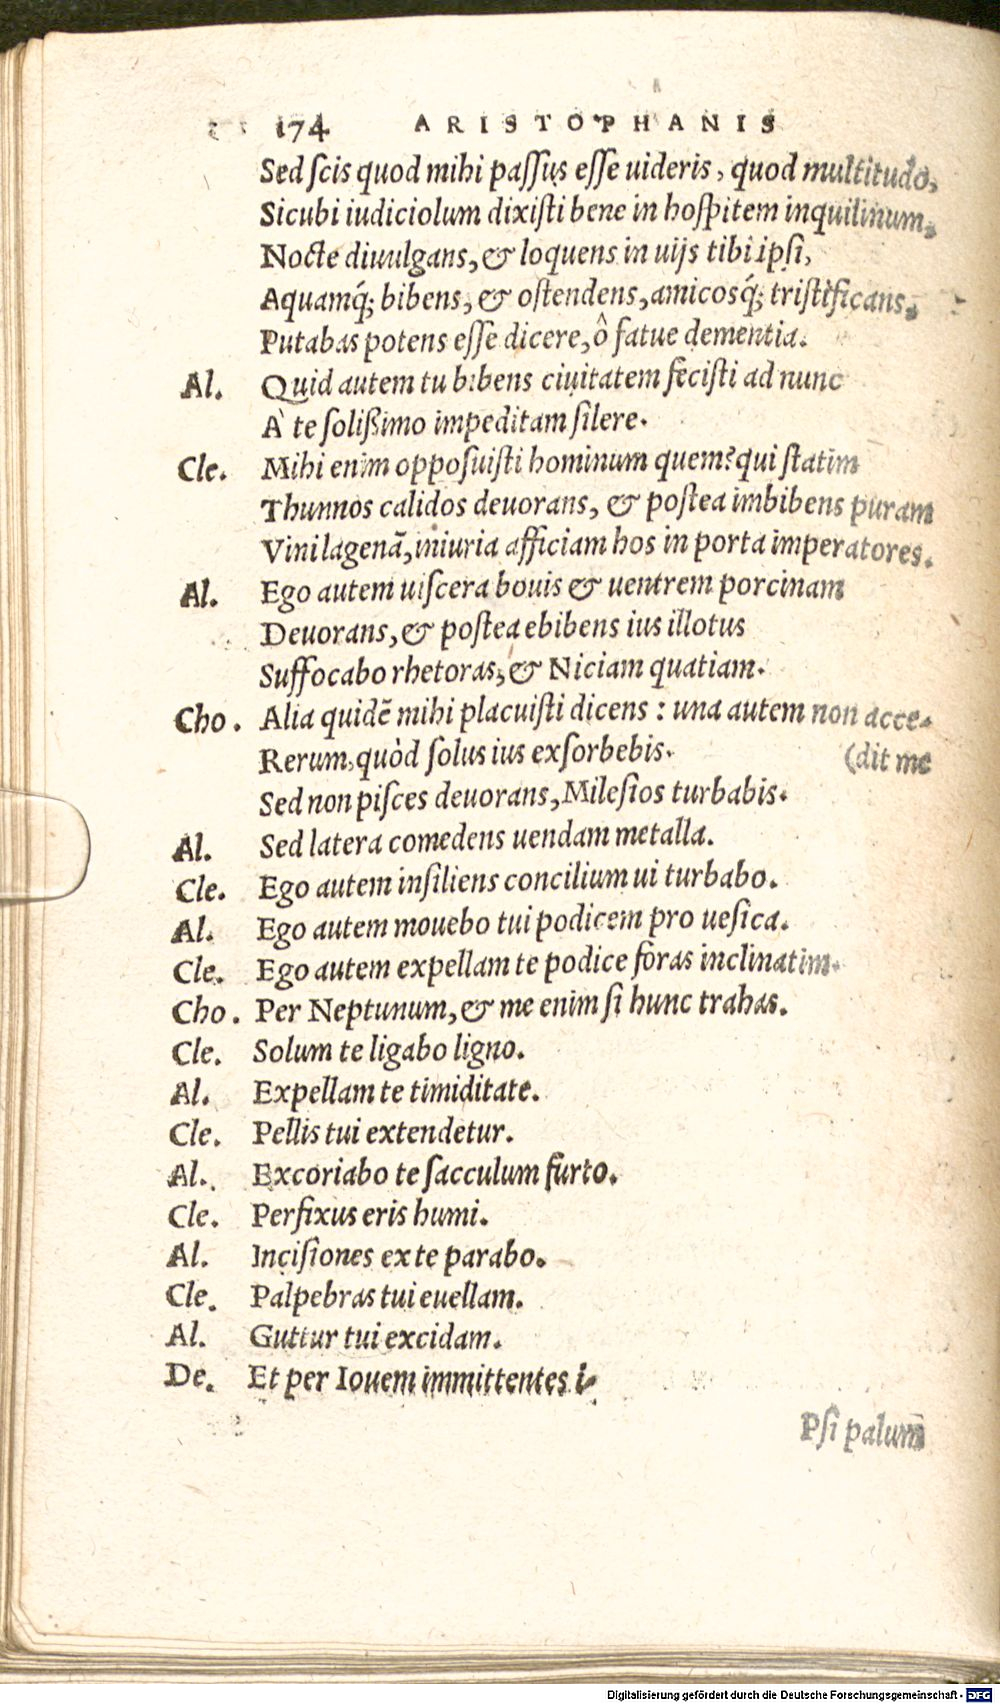 174 ARISTOPHANIS
Sed scis quod mihi passus esse uideris, quod multitudo,
Sicubi iudiciolum dixisti bene in hospitem inquilinum,
Nocte diuulgans, & loquens in uijs tibi ipsi,
Aquamq́; bibens, & ostendens, amicosq́; tristificans,
Putabas potens esse dicere, ô fatue dementia.
Al. Quid autem tu bibens ciuitatem fecisti ad nunc
À te solißimo impeditam silere.
Cle. Mihi enim opposuisti hominum quem? qui statim
Thunnos calidos deuorans, & postea imbibens puram
Vini lagenã, iniuria afficiam hos in porta imperatores.
Al. Ego autem uiscera bouis & uentrem porcinam
Deuorans, & postea ebibens ius illotus
Suffocabo rhetoras, & Niciam quatiam.
Cho. Alia quidẽ mihi placuisti dicens: una autem non acce-
Rerum, quòd solus ius exsorbebis. (dit me
Sed non pisces deuorans, Milesios turbabis.
Al. Sed latera comedens uendam metalla.
Cle. Ego autem insiliens concilium ui turbabo.
Al. Ego autem mouebo tui podicem pro uesica.
Cle. Ego autem expellam te podice foras inclinatim.
Cho. Per Neptunum, & me enim si hunc trahas.
Cle. Solum te ligabo ligno.
Al. Expellam te timiditate.
Cle. Pellis tui extendetur.
Al. Excoriabo te sacculum furto.
Cle. Perfixus eris humi.
Al. Incisiones ex te parabo.
Cle. Palpebras tui euellam.
Al. Guttur tui excidam.
De. Et per Iouem immittentes i-
Psi palum
Digitalisierung gefördert durch die Deutsche Forschungsgemeinschaft - DFG